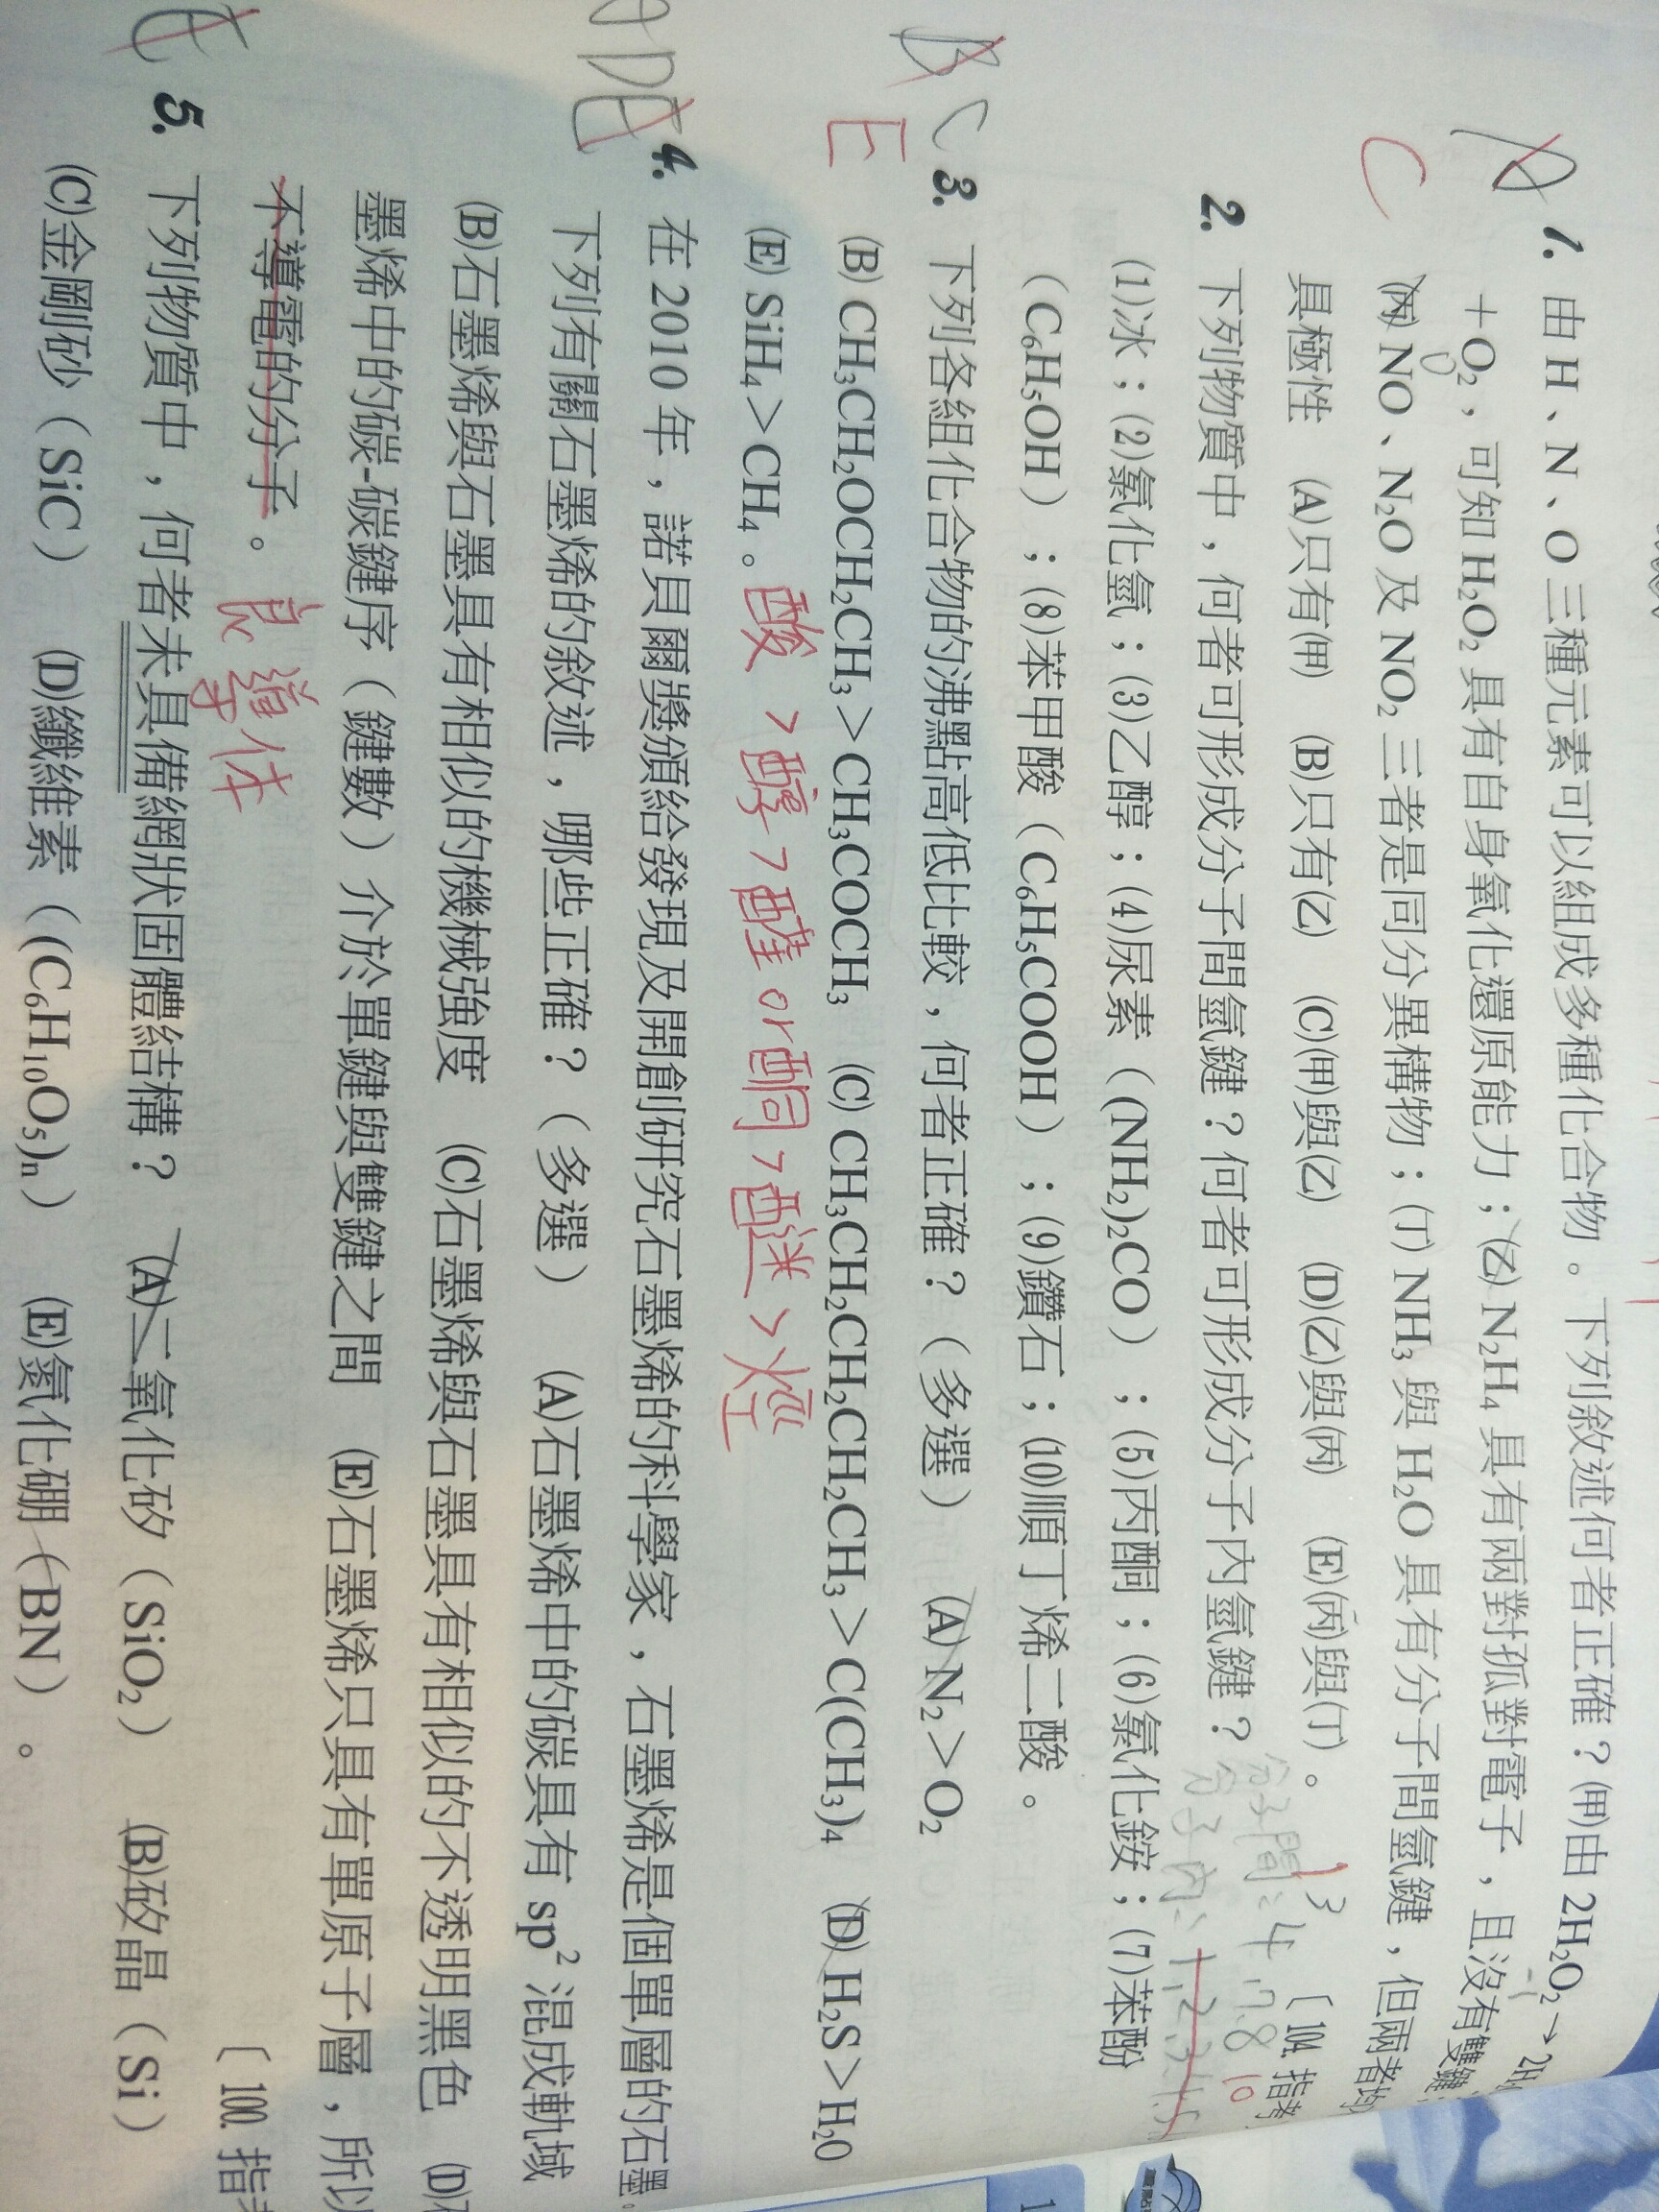 1. 由 H、N、O 三種元素可以組成多種化合物。下列敘述何者正確？(甲)由 2H₂O₂→2H₂
+O₂，可知 H₂O₂ 具有自身氧化還原能力；(乙) N₂H₄ 具有兩對孤對電子，且沒有雙鍵
(丙) NO、N₂O 及 NO₂ 三者是同分異構物；(丁) NH₃ 與 H₂O 具有分子間氫鍵，但兩者均
具極性 (A)只有(甲) (B)只有(乙) (C)(甲)與(乙) (D)(乙)與(丙) (E)(丙)與(丁)。 〔104. 指考
A
C
2. 下列物質中，何者可形成分子間氫鍵？何者可形成分子內氫鍵？
分子間: 4 7.8 10
1 3
分子內: 1.2.3.4.5
(1)冰；(2)氯化氫；(3)乙醇；(4)尿素（(NH₂)₂CO）；(5)丙酮；(6)氯化銨；(7)苯酚
（C₆H₅OH）；(8)苯甲酸（C₆H₅COOH）；(9)鑽石；(10)順丁烯二酸。
B C
E
3. 下列各組化合物的沸點高低比較，何者正確？（多選） (A) N₂＞O₂
(B) CH₃CH₂OCH₂CH₃＞CH₃COCH₃ (C) CH₃CH₂CH₂CH₂CH₃＞C(CH₃)₄ (D) H₂S＞H₂O
(E) SiH₄＞CH₄。
酸 > 醇 > 醛 or 酮 > 醚 > 烴
ADE
4. 在 2010 年，諾貝爾獎頒給發現及開創研究石墨烯的科學家，石墨烯是個單層的石墨。
下列有關石墨烯的敘述，哪些正確？（多選） (A)石墨烯中的碳具有 sp² 混成軌域
(B)石墨烯與石墨具有相似的機械強度 (C)石墨烯與石墨具有相似的不透明黑色 (D)石
墨烯中的碳-碳鍵序（鍵數）介於單鍵與雙鍵之間 (E)石墨烯只具有單原子層，所以
不導電的分子。 〔100. 指考
良導体
E
5. 下列物質中，何者未具備網狀固體結構？ (A)二氧化矽（SiO₂） (B)矽晶（Si）
(C)金剛砂（SiC） (D)纖維素（(C₆H₁₀O₅)ₙ） (E)氮化硼（BN）。